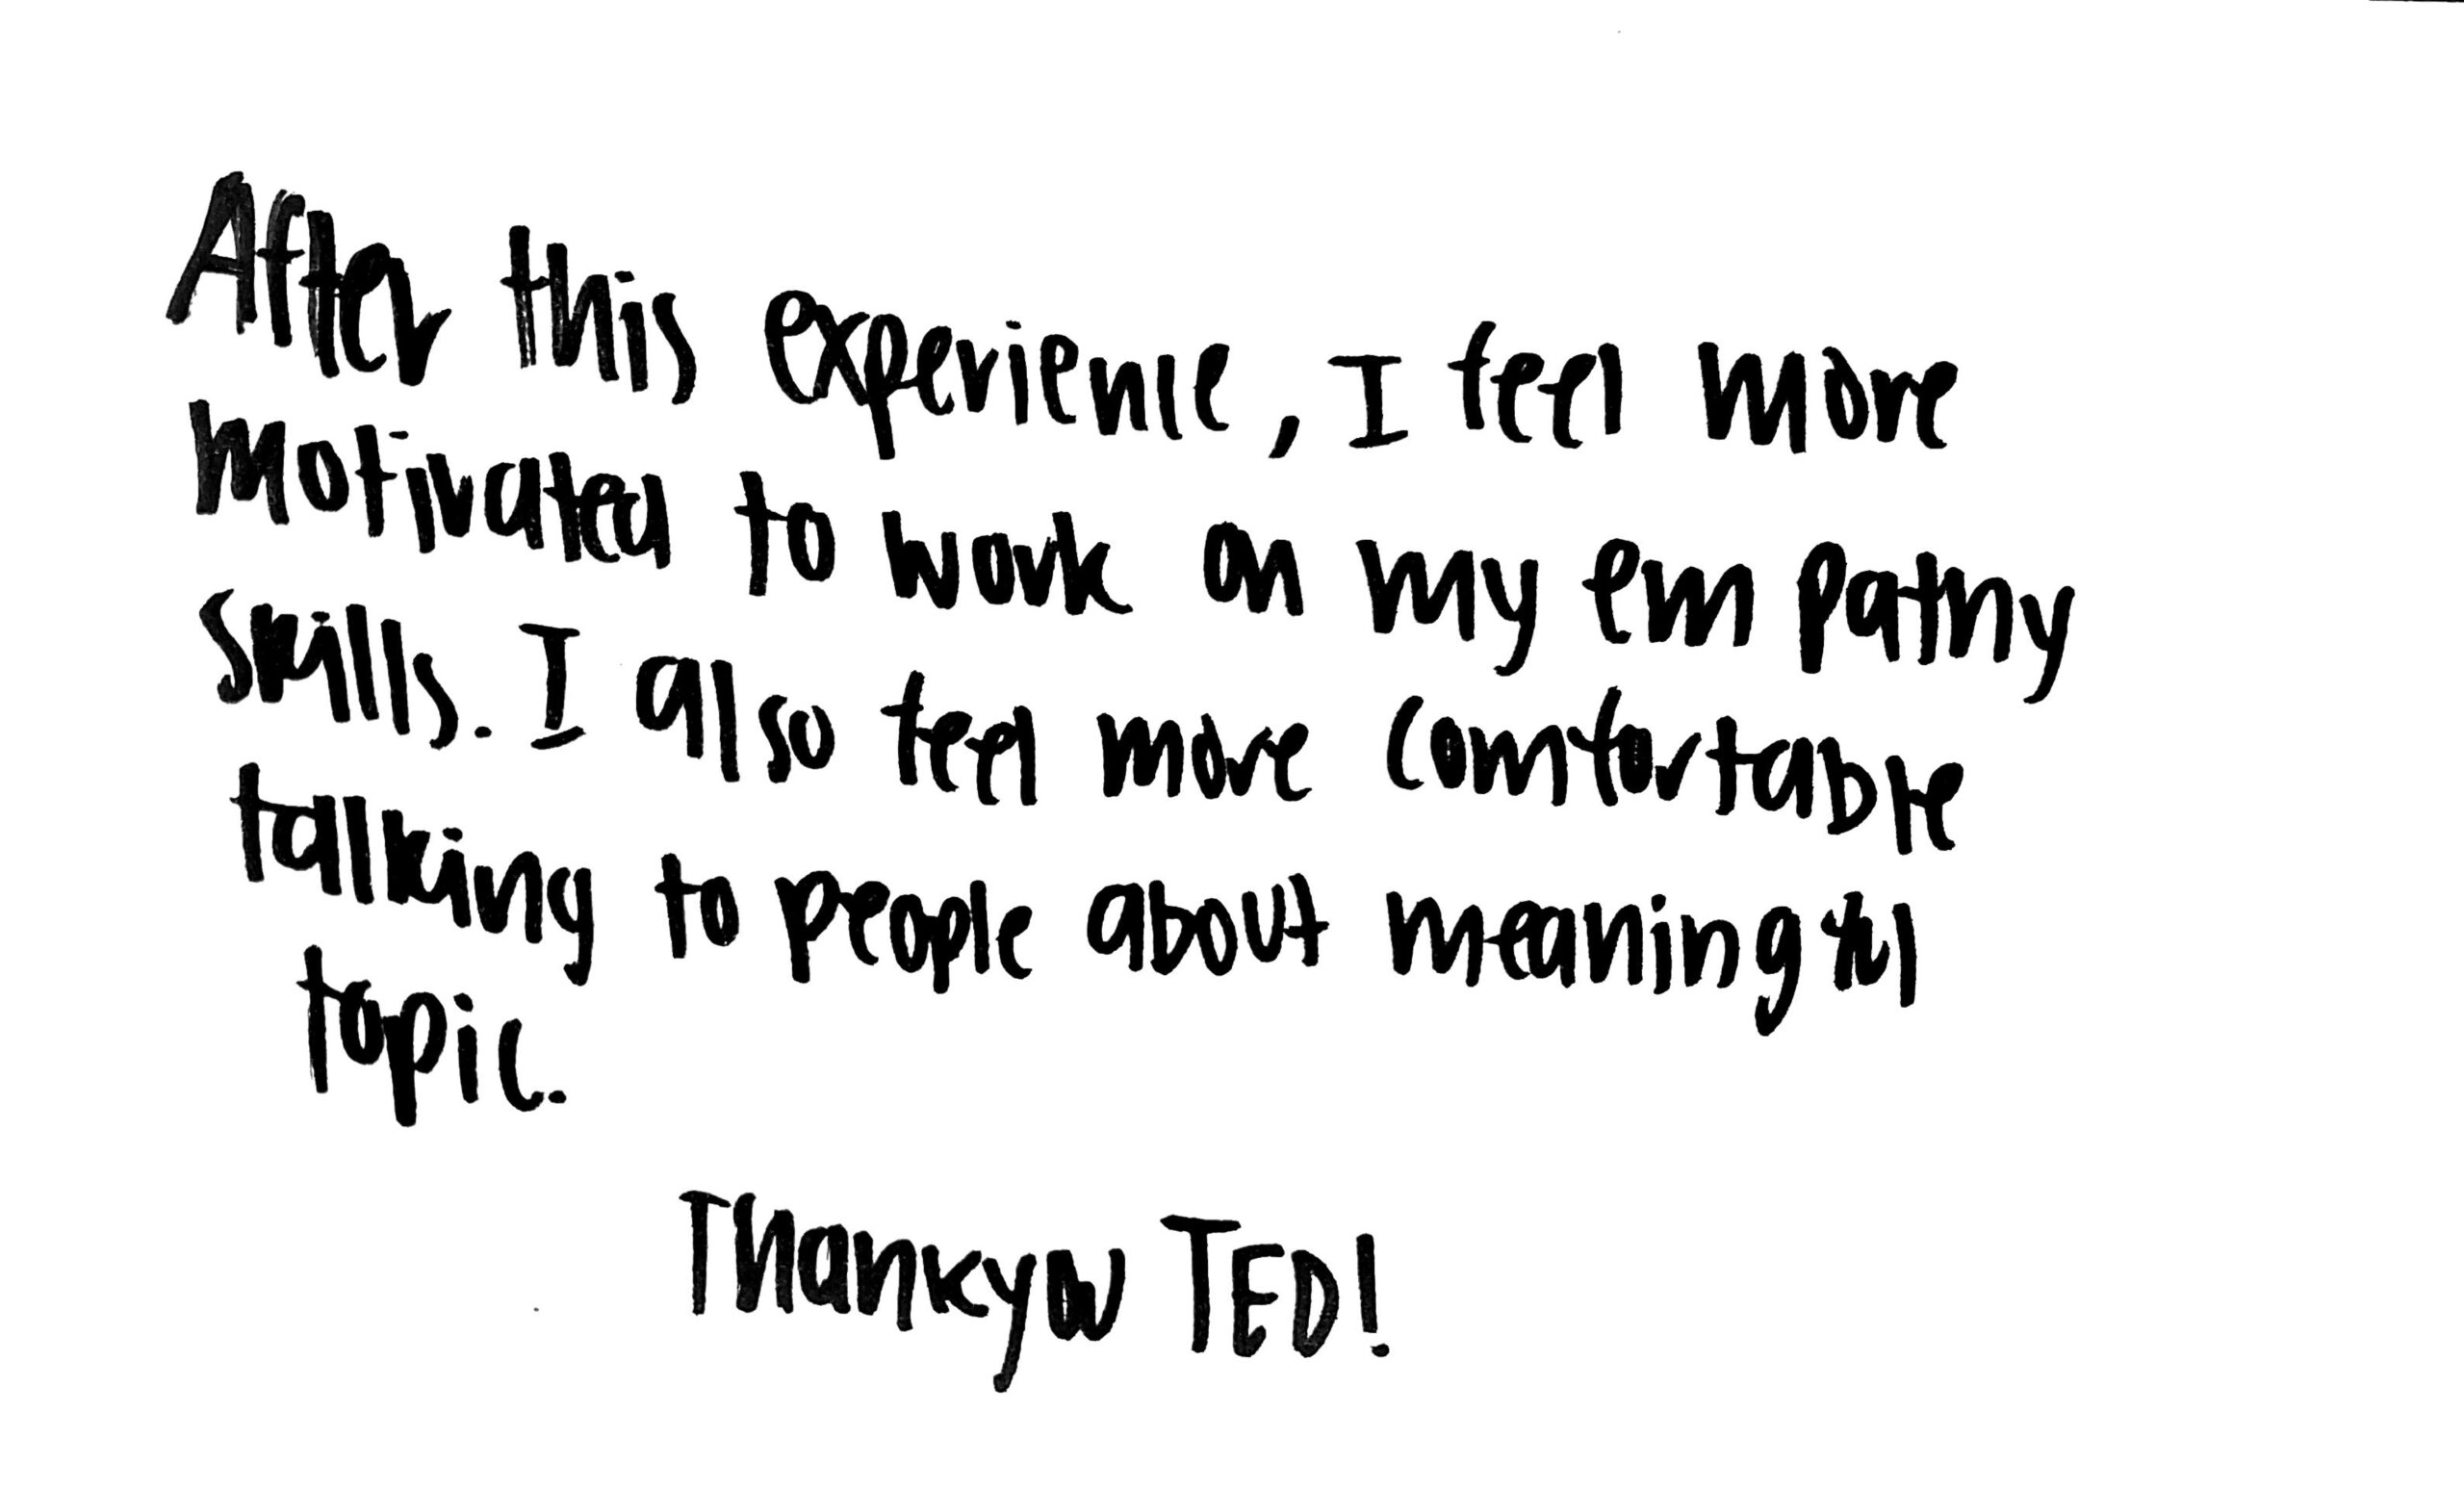 After this experience, I feel more
motivated to work on my empathy
skills. I also feel more comfortable
talking to people about meaningful
topic.
Thankyou TED!